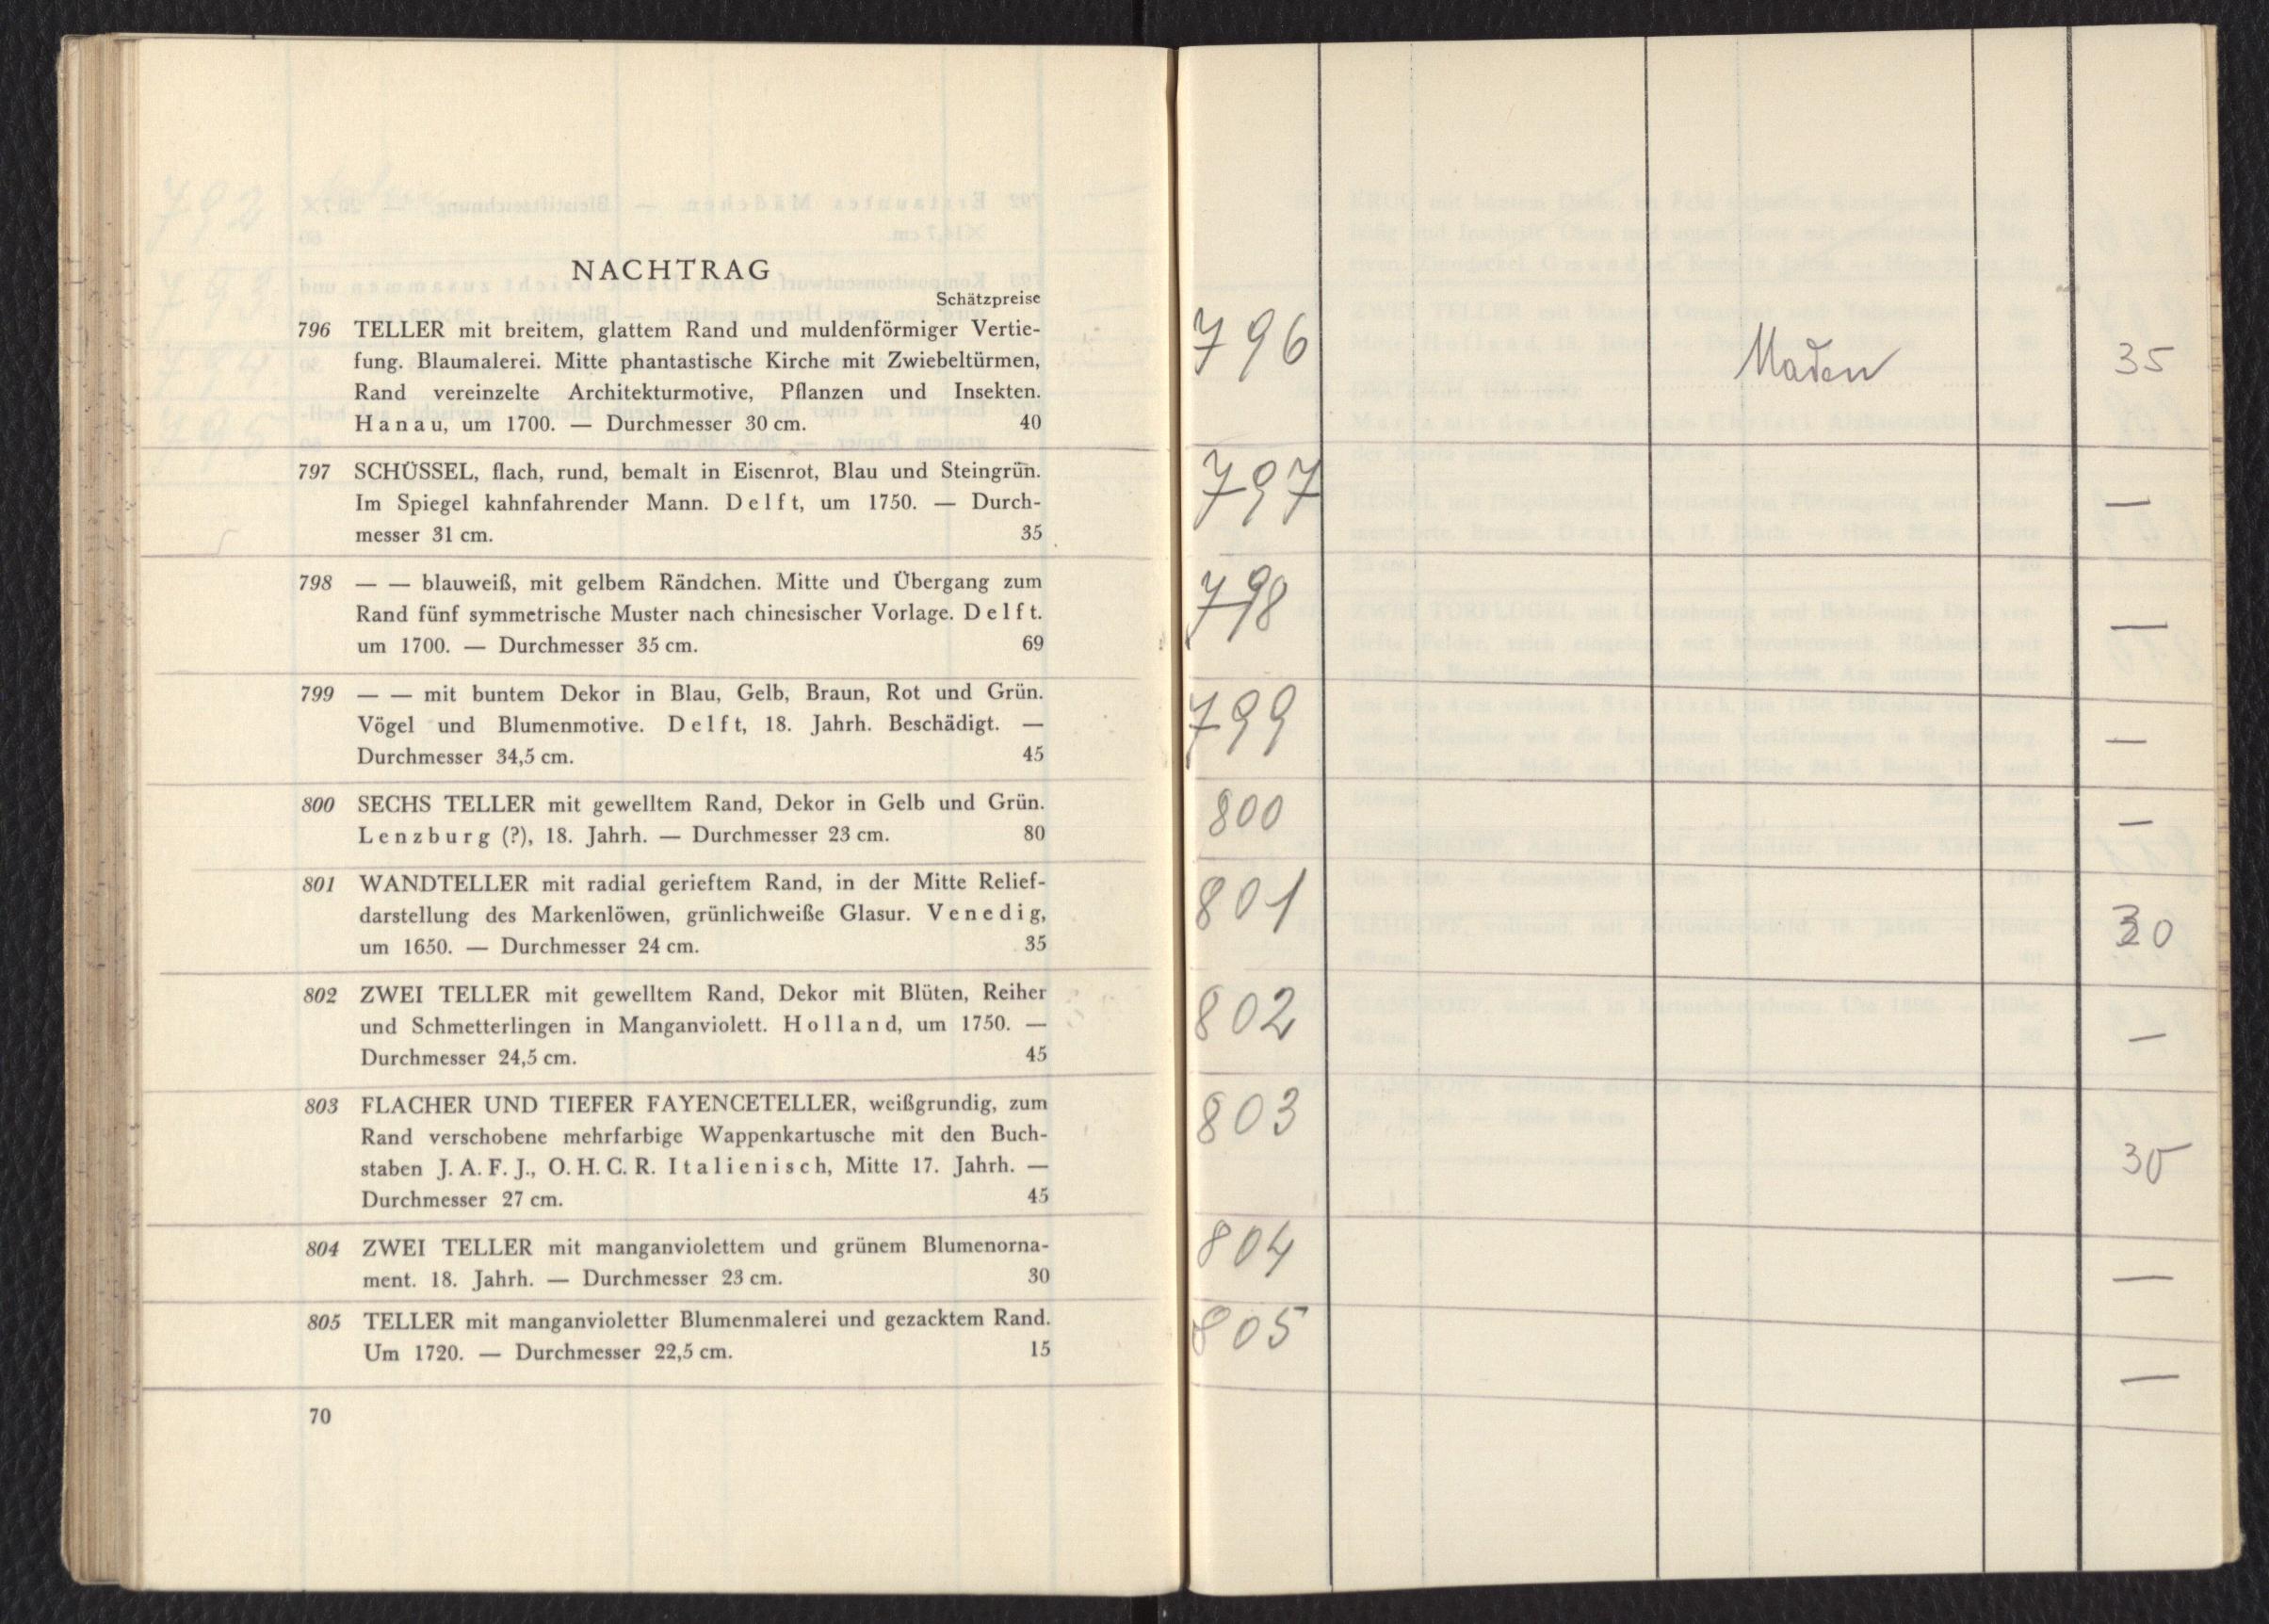 NACHTRAG
Schätzpreise
796 TELLER mit breitem, glattem Rand und muldenförmiger Vertie-
fung. Blaumalerei. Mitte phantastische Kirche mit Zwiebeltürmen,
Rand vereinzelte Architekturmotive, Pflanzen und Insekten.
Hanau, um 1700. — Durchmesser 30 cm. 40
797 SCHÜSSEL, flach, rund, bemalt in Eisenrot, Blau und Steingrün.
Im Spiegel kahnfahrender Mann. Delft, um 1750. — Durch-
messer 31 cm. 35
798 — — blauweiß, mit gelbem Rändchen. Mitte und Übergang zum
Rand fünf symmetrische Muster nach chinesischer Vorlage. Delft.
um 1700. — Durchmesser 35 cm. 69
799 — — mit buntem Dekor in Blau, Gelb, Braun, Rot und Grün.
Vögel und Blumenmotive. Delft, 18. Jahrh. Beschädigt. —
Durchmesser 34,5 cm. 45
800 SECHS TELLER mit gewelltem Rand, Dekor in Gelb und Grün.
Lenzburg (?), 18. Jahrh. — Durchmesser 23 cm. 80
801 WANDTELLER mit radial gerieftem Rand, in der Mitte Relief-
darstellung des Markenlöwen, grünlichweiße Glasur. Venedig,
um 1650. — Durchmesser 24 cm. 35
802 ZWEI TELLER mit gewelltem Rand, Dekor mit Blüten, Reiher
und Schmetterlingen in Manganviolett. Holland, um 1750. —
Durchmesser 24,5 cm. 45
803 FLACHER UND TIEFER FAYENCETELLER, weißgrundig, zum
Rand verschobene mehrfarbige Wappenkartusche mit den Buch-
staben J. A. F. J., O. H. C. R. Italienisch, Mitte 17. Jahrh. —
Durchmesser 27 cm. 45
804 ZWEI TELLER mit manganviolettem und grünem Blumenorna-
ment. 18. Jahrh. — Durchmesser 23 cm. 30
805 TELLER mit manganvioletter Blumenmalerei und gezacktem Rand.
Um 1720. — Durchmesser 22,5 cm. 15
70
796 35
797 —
798 —
799 —
800 —
801 30
802 —
803 30
804 —
805 —